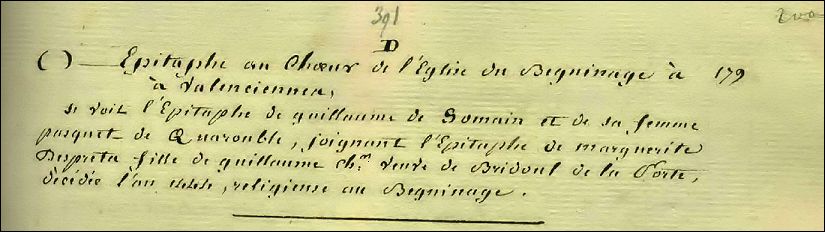 391
200
D
( ) — Epitaphe au Chœur de l'Eglise du Beguinage à 179
à Valenciennes,
se voit l'Epitaphe de guillaume de Somain et de sa femme
pasquet de Quarouble, joignant l'Epitaphe de marguerite
Despretz fille de guillaume chr. veuve de Bridoul de la Porte,
décédée l'an 1444, religieuse au Beguinage.